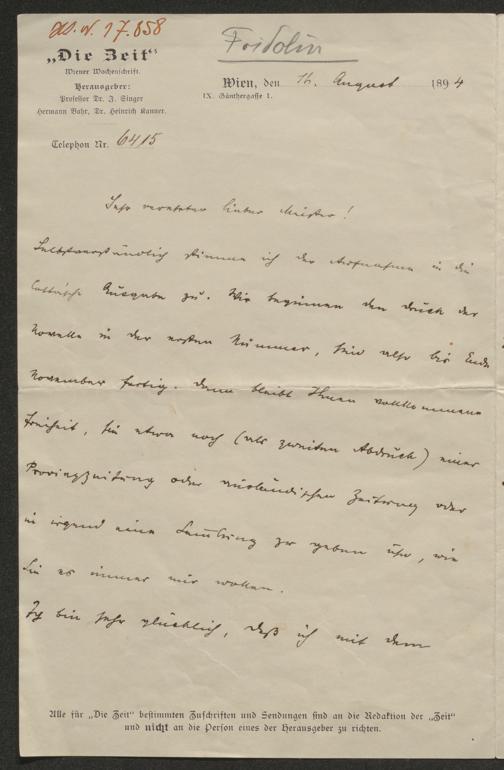 I.N. 17.858
Fridolin
„Die Zeit“
Wiener Wochenschrift.
Herausgeber:
Professor Dr. J. Singer
Hermann Bahr, Dr. Heinrich Kanner.
Telephon Nr. 6415
Wien, den 16. August 1894
IX. Günthergasse 1.
Sehr verehrter lieber Meister!
Selbstverständlich stimme ich der Aufnahme in die
Cotta'sche Ausgabe zu. Wir beginnen den Druck der
Novelle in der ersten Nummer, sind also bis Ende
November fertig. Dann bleibt Ihnen vollkommene
Freiheit, sie etwa noch (als zweiten Abdruck) einer
Provinzzeitung oder ausländischen Zeitung oder
in irgend eine Samlung zu geben usw, wie
Sie es immer nur wollen.
Ich bin sehr glücklich, daß ich mit dem
Alle für „Die Zeit“ bestimmten Zuschriften und Sendungen sind an die Redaktion der „Zeit“
und nicht an die Person eines der Herausgeber zu richten.